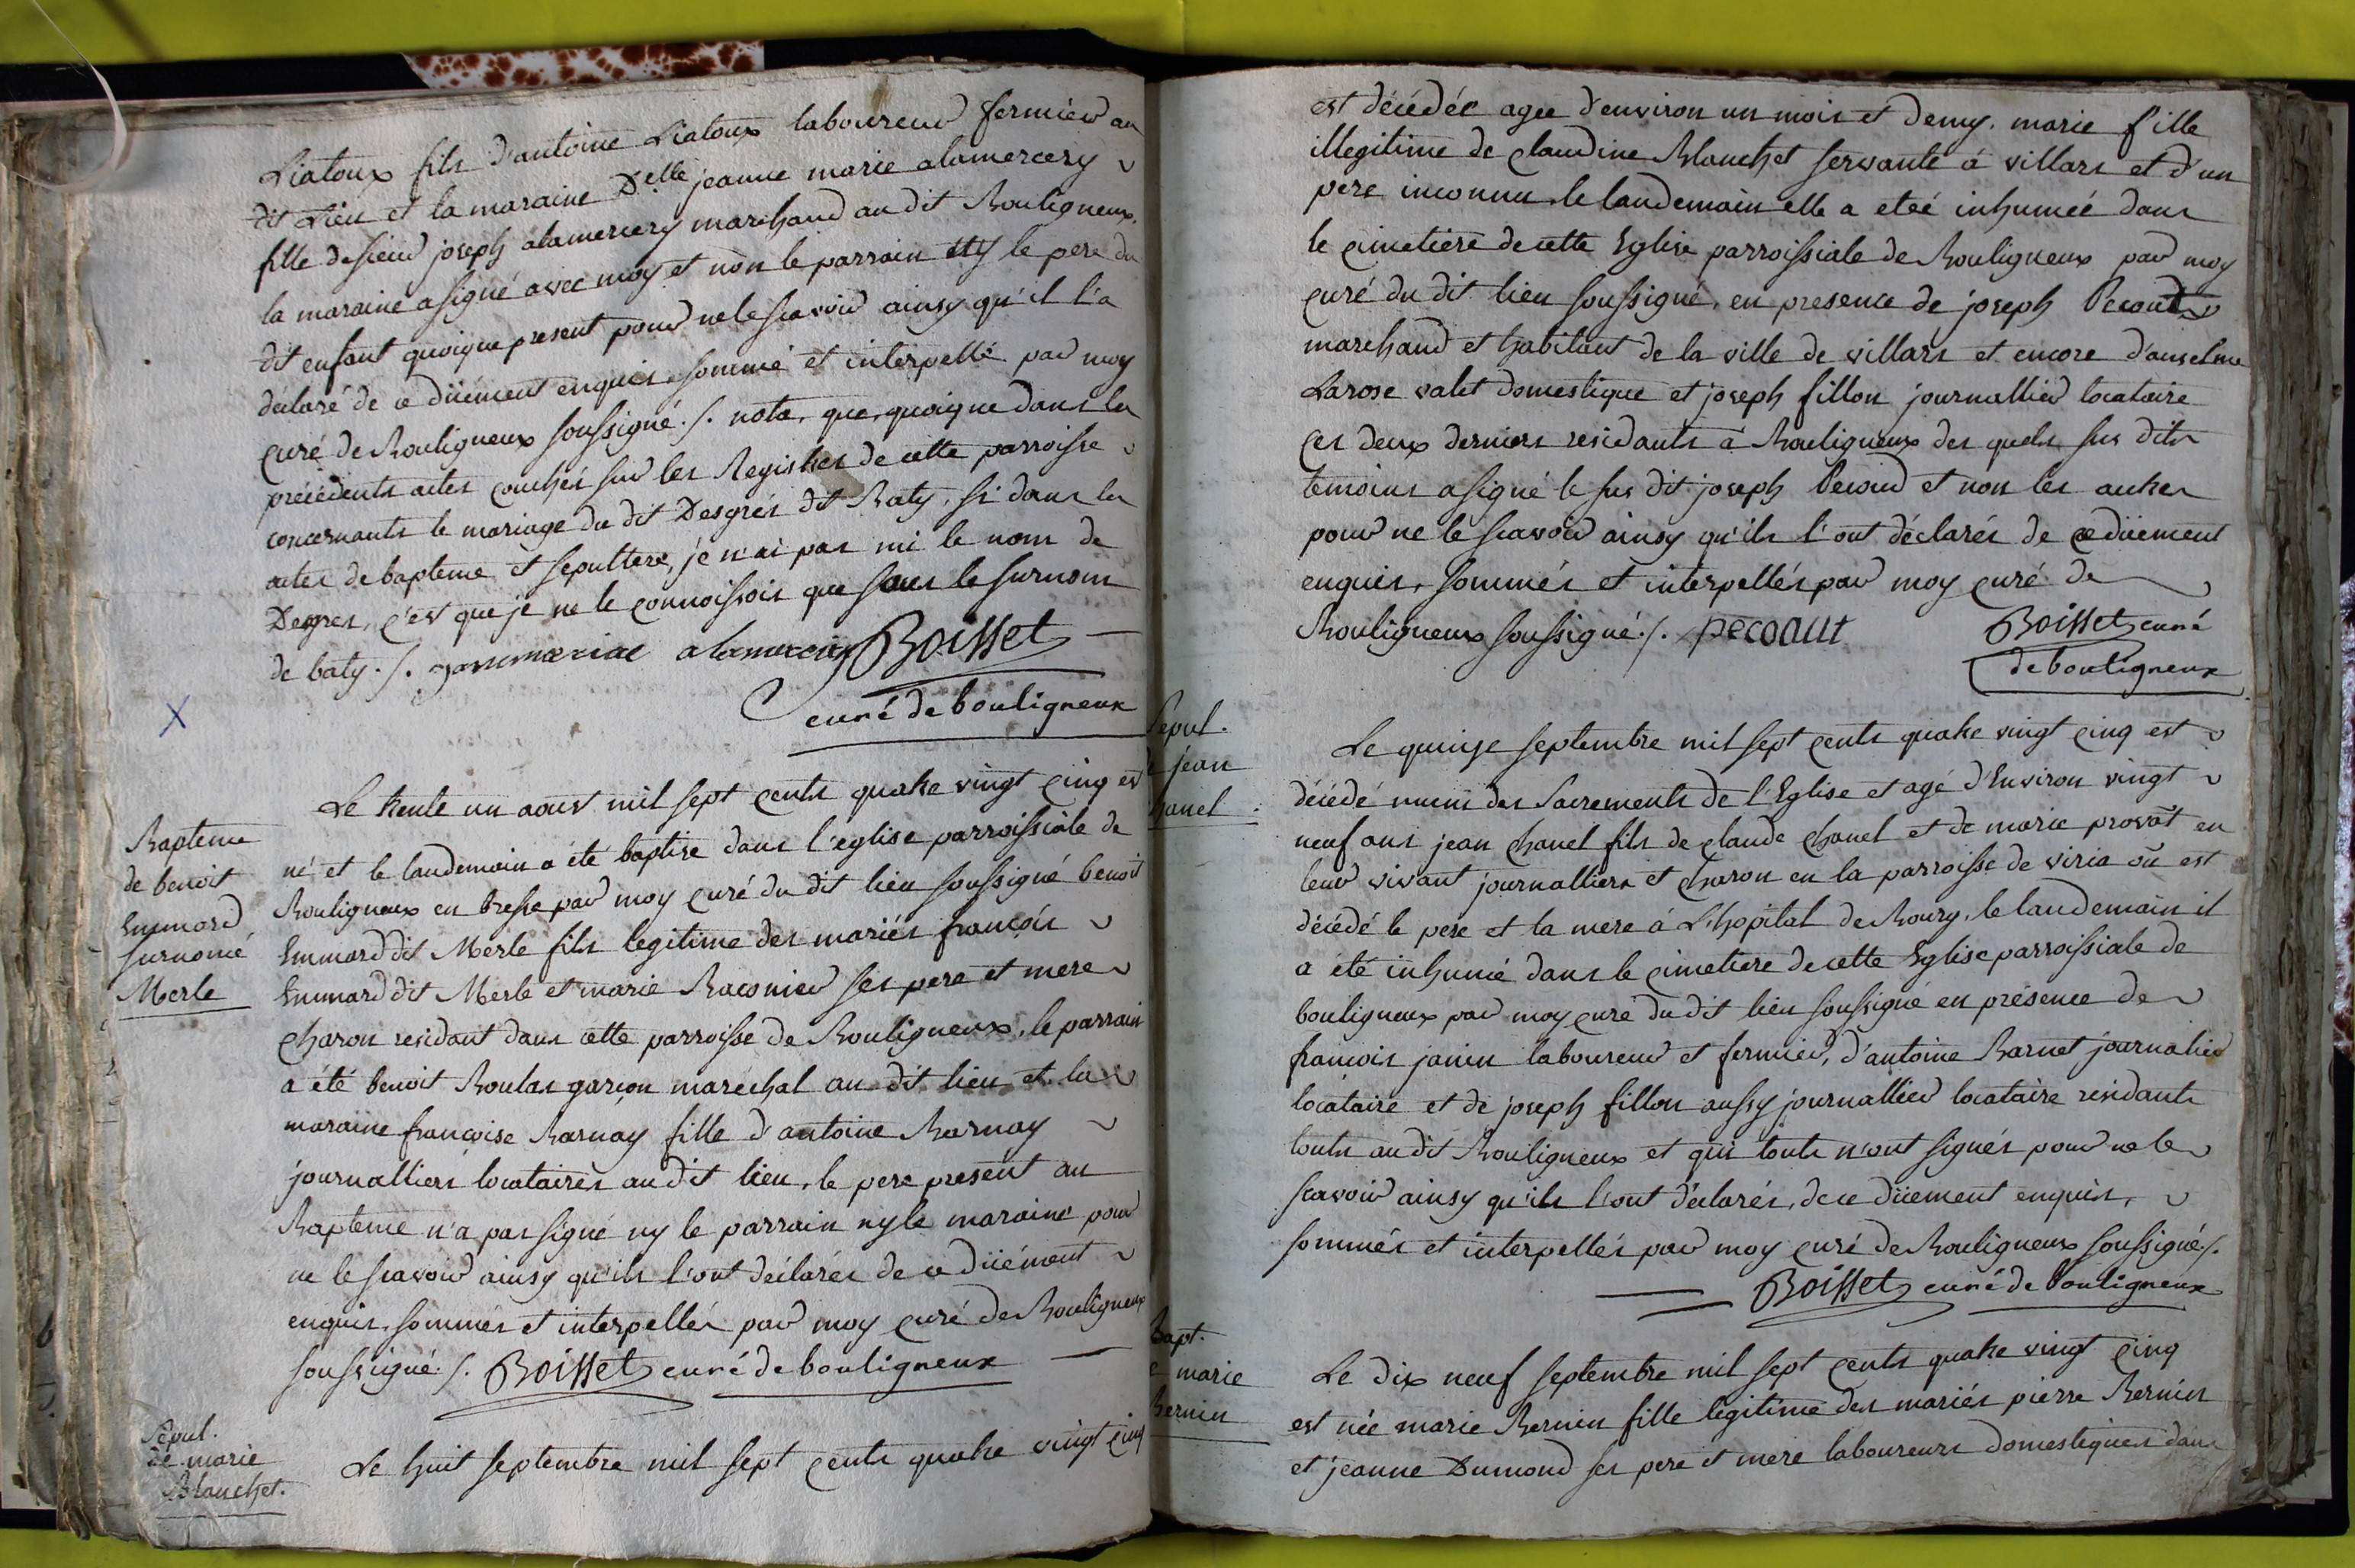 Liatoux fils d'antoine Liatoux laboureur fermier au
dit Lieu et la maraine Delle jeanne marie alamercery
fille de sieur joseph alamercery marchand au dit Bouligneux,
la maraine a signé avec moy et non le parrain ny le pere du
dit enfant quoique present pour ne le scavoir ainsy qu'il l'a
déclaré de ce düement enquis sommé et interpellé par moy
curé de Bouligneux soussigné ./. nota, que, quoique dans les
précédents actes couchés sur les Registres de cette parroisse
concernants le mariage du dit Desgrés dit Baty, si dans les
actes de bapteme et sepulture, je n'ai pas mi le nom de
Desgres, c'est que je ne le connoissois que sous le surnom
de baty ./. alamercery Boisset
curé de bouligneux
Bapteme
de benoit
Emmard
surnomé
Merle
Le trente un aoust mil sept cents quatre vingt cinq est
né et le landemain a été baptise dans l'eglise parroissiale de
Bouligneux en bresse par moy curé du dit lieu soussigné benoit
Emmard dit Merle fils legitime des mariés françois
Emmard dit Merle et marie Raconier ses pere et mere
charon residant dans cette parroisse de Bouligneux, le parrain
a été benoit Boulas garçon marechal au dit lieu et la
maraine françoise Barnay fille d'antoine Barnay
journalliers locataires au dit lieu, le pere present au
Bapteme n'a pas signé ny le parrain ny la maraine pour
ne le scavoir ainsy qu'ils l'ont déclarés de ce düement
enquis, sommés et interpellés par moy curé de Bouligneux
soussigné ./. Boisset curé de bouligneux
Sepul.
de marie
Blanchet.
Le huit septembre mil sept cents quatre vingt cinq
est décédée agee d'environ un mois et demy, marie fille
illegitime de claudine Blanchet servante à villars et d'un
pere inconnu, le landemain elle a eteé inhumée dans
le cimetiere de cette Eglise parroissiale de Bouligneux par moy
curé du dit lieu soussigné, en presence de joseph Pecoud
marchand et habitant de la ville de villars et encore d'anselme
Larose valet domestique et joseph fillon journallier locataire
ces deux derniers residants à Bouligneux des quels sus dits
temoins a signé le sus dit joseph Pecoud et non les autres
pour ne le scavoir ainsy qu'ils l'ont déclarés de ce düement
enquis, sommés et interpellés par moy curé de
Bouligneux soussigné ./. pecout Boisset curé
de bouligneux
Sepul.
jean
hanel
Le quinze septembre mil sept cents quatre vingt cinq est
décédé muni des Sacrements de l'Eglise et agé d'Environ vingt
neuf ans jean chanel fils de claude chanel et de marie provõt en
leur vivant journalliers et charon en la parroisse de viria oü est
décédé le pere et la mere à L'hopital de Bourg, le landemain il
a été inhumé dans le cimetiere de cette Eglise parroissiale de
bouligneux par moy curé du dit lieu soussigné en présence de
francois janin laboureur et fermier, d'antoine Barnet journalier
locataire et de joseph fillon aussy journallier locataire residants
touts au dit Bouligneux et qui touts n'ont signés pour ne le
scavoir ainsy qu'ils l'ont déclarés, de ce düement enquis,
sommés et interpellés par moy curé de Bouligneux soussigné ./.
Boisset curé de bouligneux
Bapt.
marie
Bernin
Le dix neuf septembre mil sept cents quatre vingt cinq
est née marie Bernin fille legitime des mariés pierre Bernin
et jeanne Dumond ses pere et mere laboureurs domestiques dans